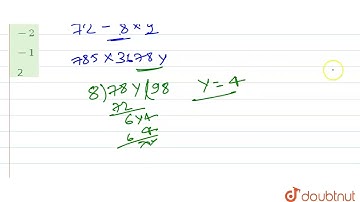 -2
-1
2
72 - 8 * y
785 X 3678 y
8) 78 y 98 y = 4
72
6 y 4
6 4
doubtnut